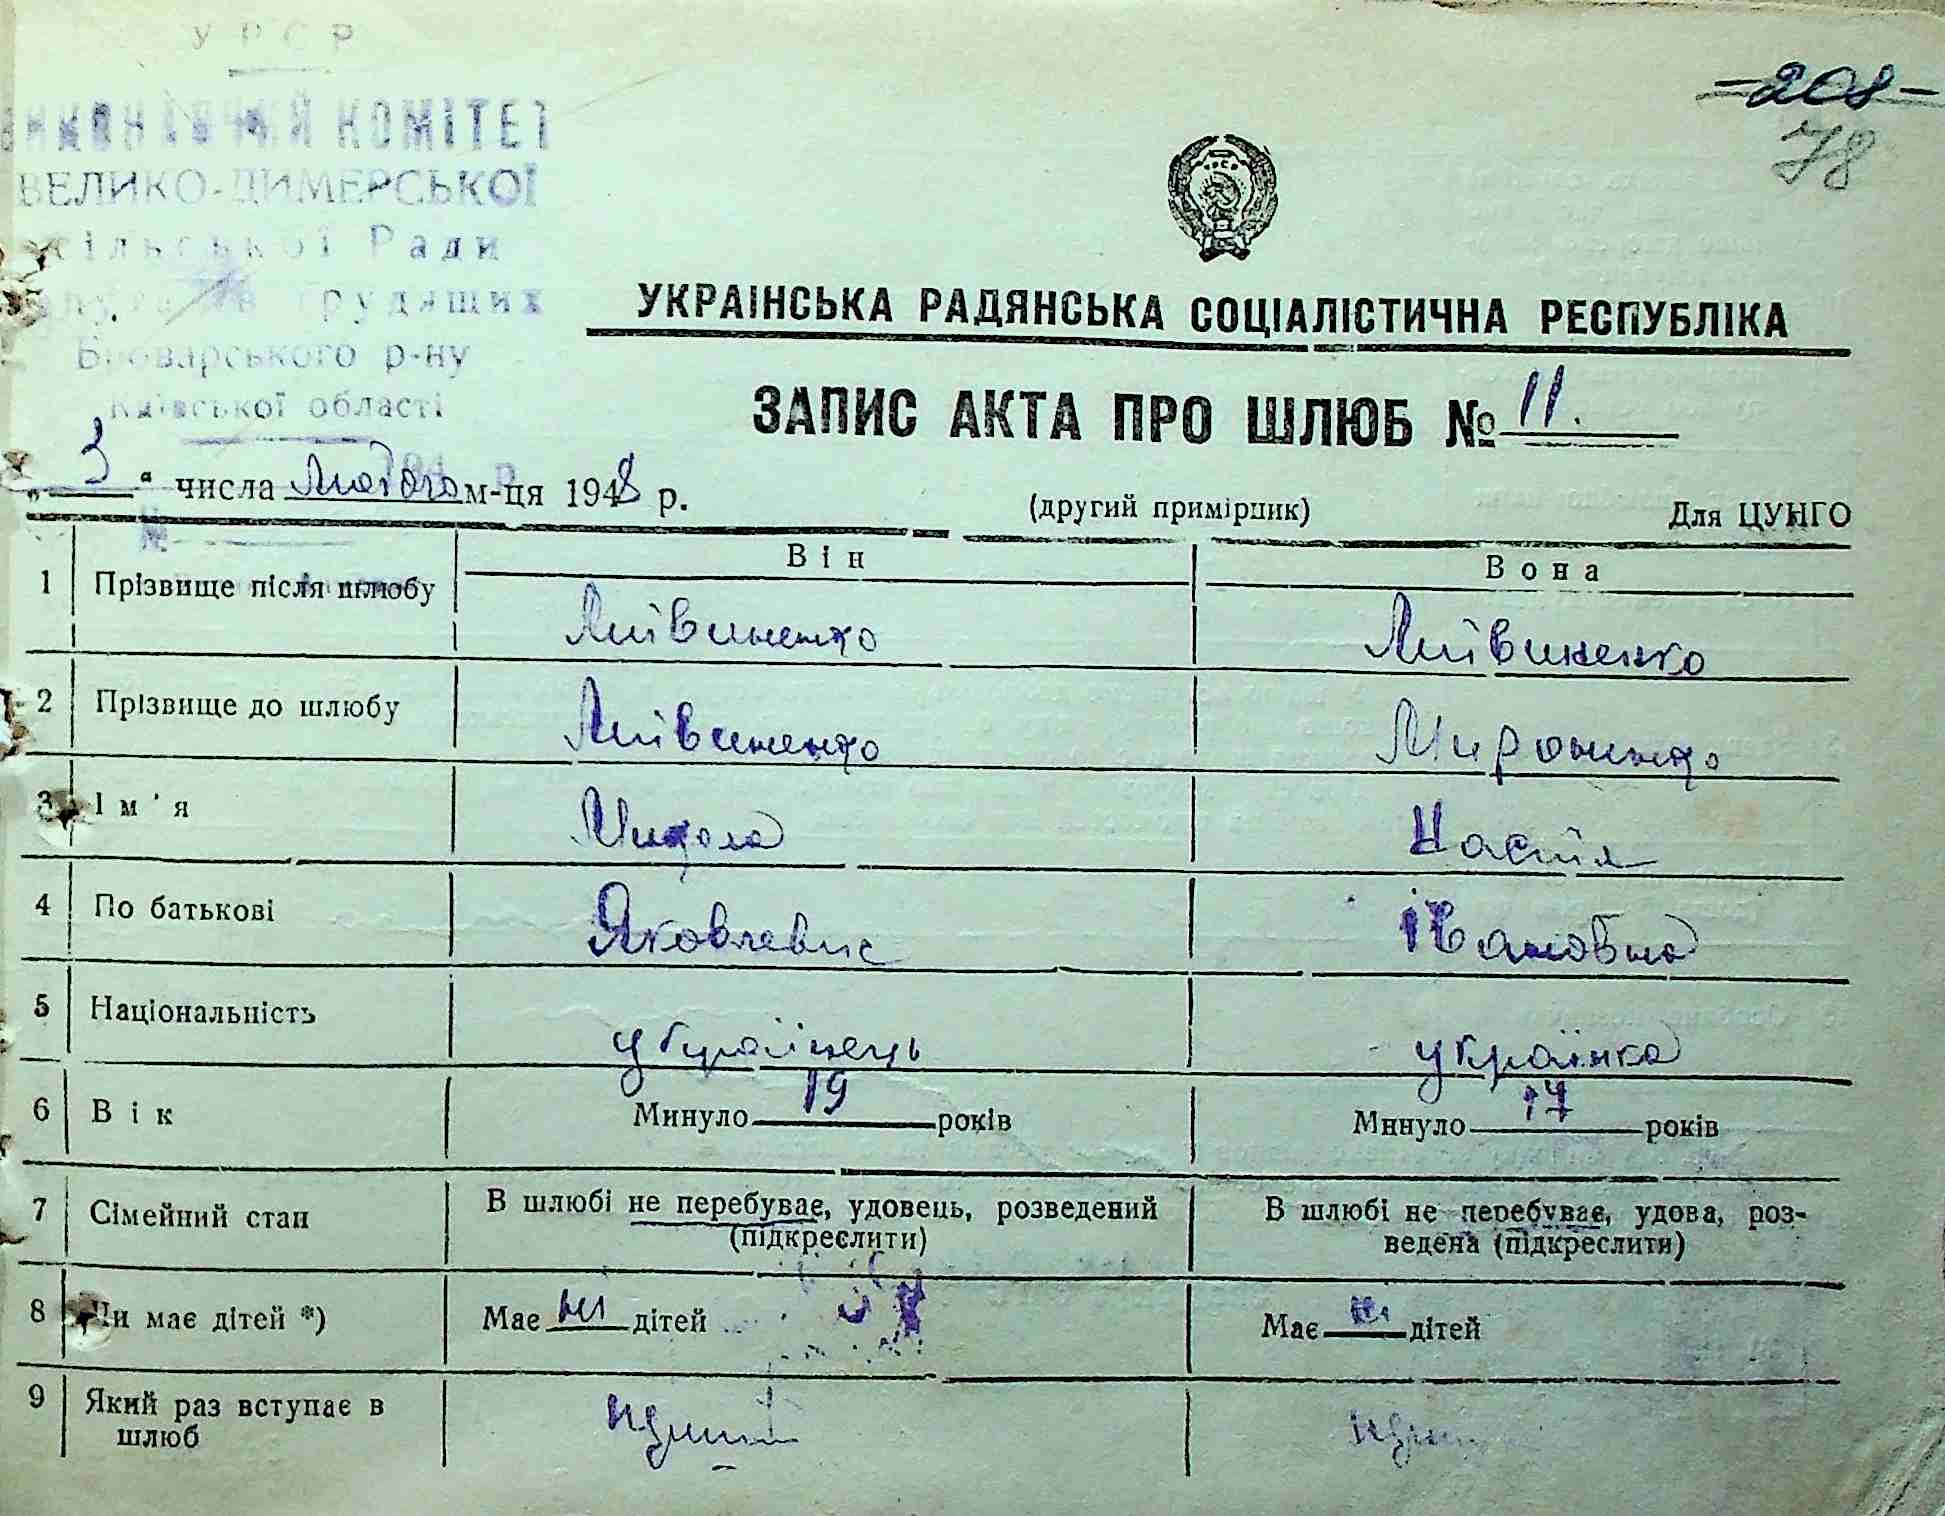 УРСР
ВИКОНАВЧИЙ КОМІТЕТ
ВЕЛИКО-ДИМЕРСЬКОЇ
сільської Ради
депутатів трудящих
Броварського р-ну
Київської області
-208-
78
УКРАЇНСЬКА РАДЯНСЬКА СОЦІАЛІСТИЧНА РЕСПУБЛІКА
ЗАПИС АКТА ПРО ШЛЮБ № 11.
„3“ числа Лютого м-ця 1948 р.
(другий примірник) Для ЦУНГО
№
Він Вона
1 Прізвище після шлюбу Литвиненко Литвиненко
2 Прізвище до шлюбу Литвиненко Мироненко
3 Ім'я Микола Настя
4 По батькові Яковлевич Івановна
5 Національність українець українка
6 Вік Минуло 19 років Минуло 17 років
7 Сімейний стан В шлюбі не перебуває, удовець, розведений (підкреслити) В шлюбі не перебуває, удова, роз-
ведена (підкреслити)
8 Чи має дітей *) Має ні дітей Має ні дітей
9 Який раз вступає в
шлюб перший